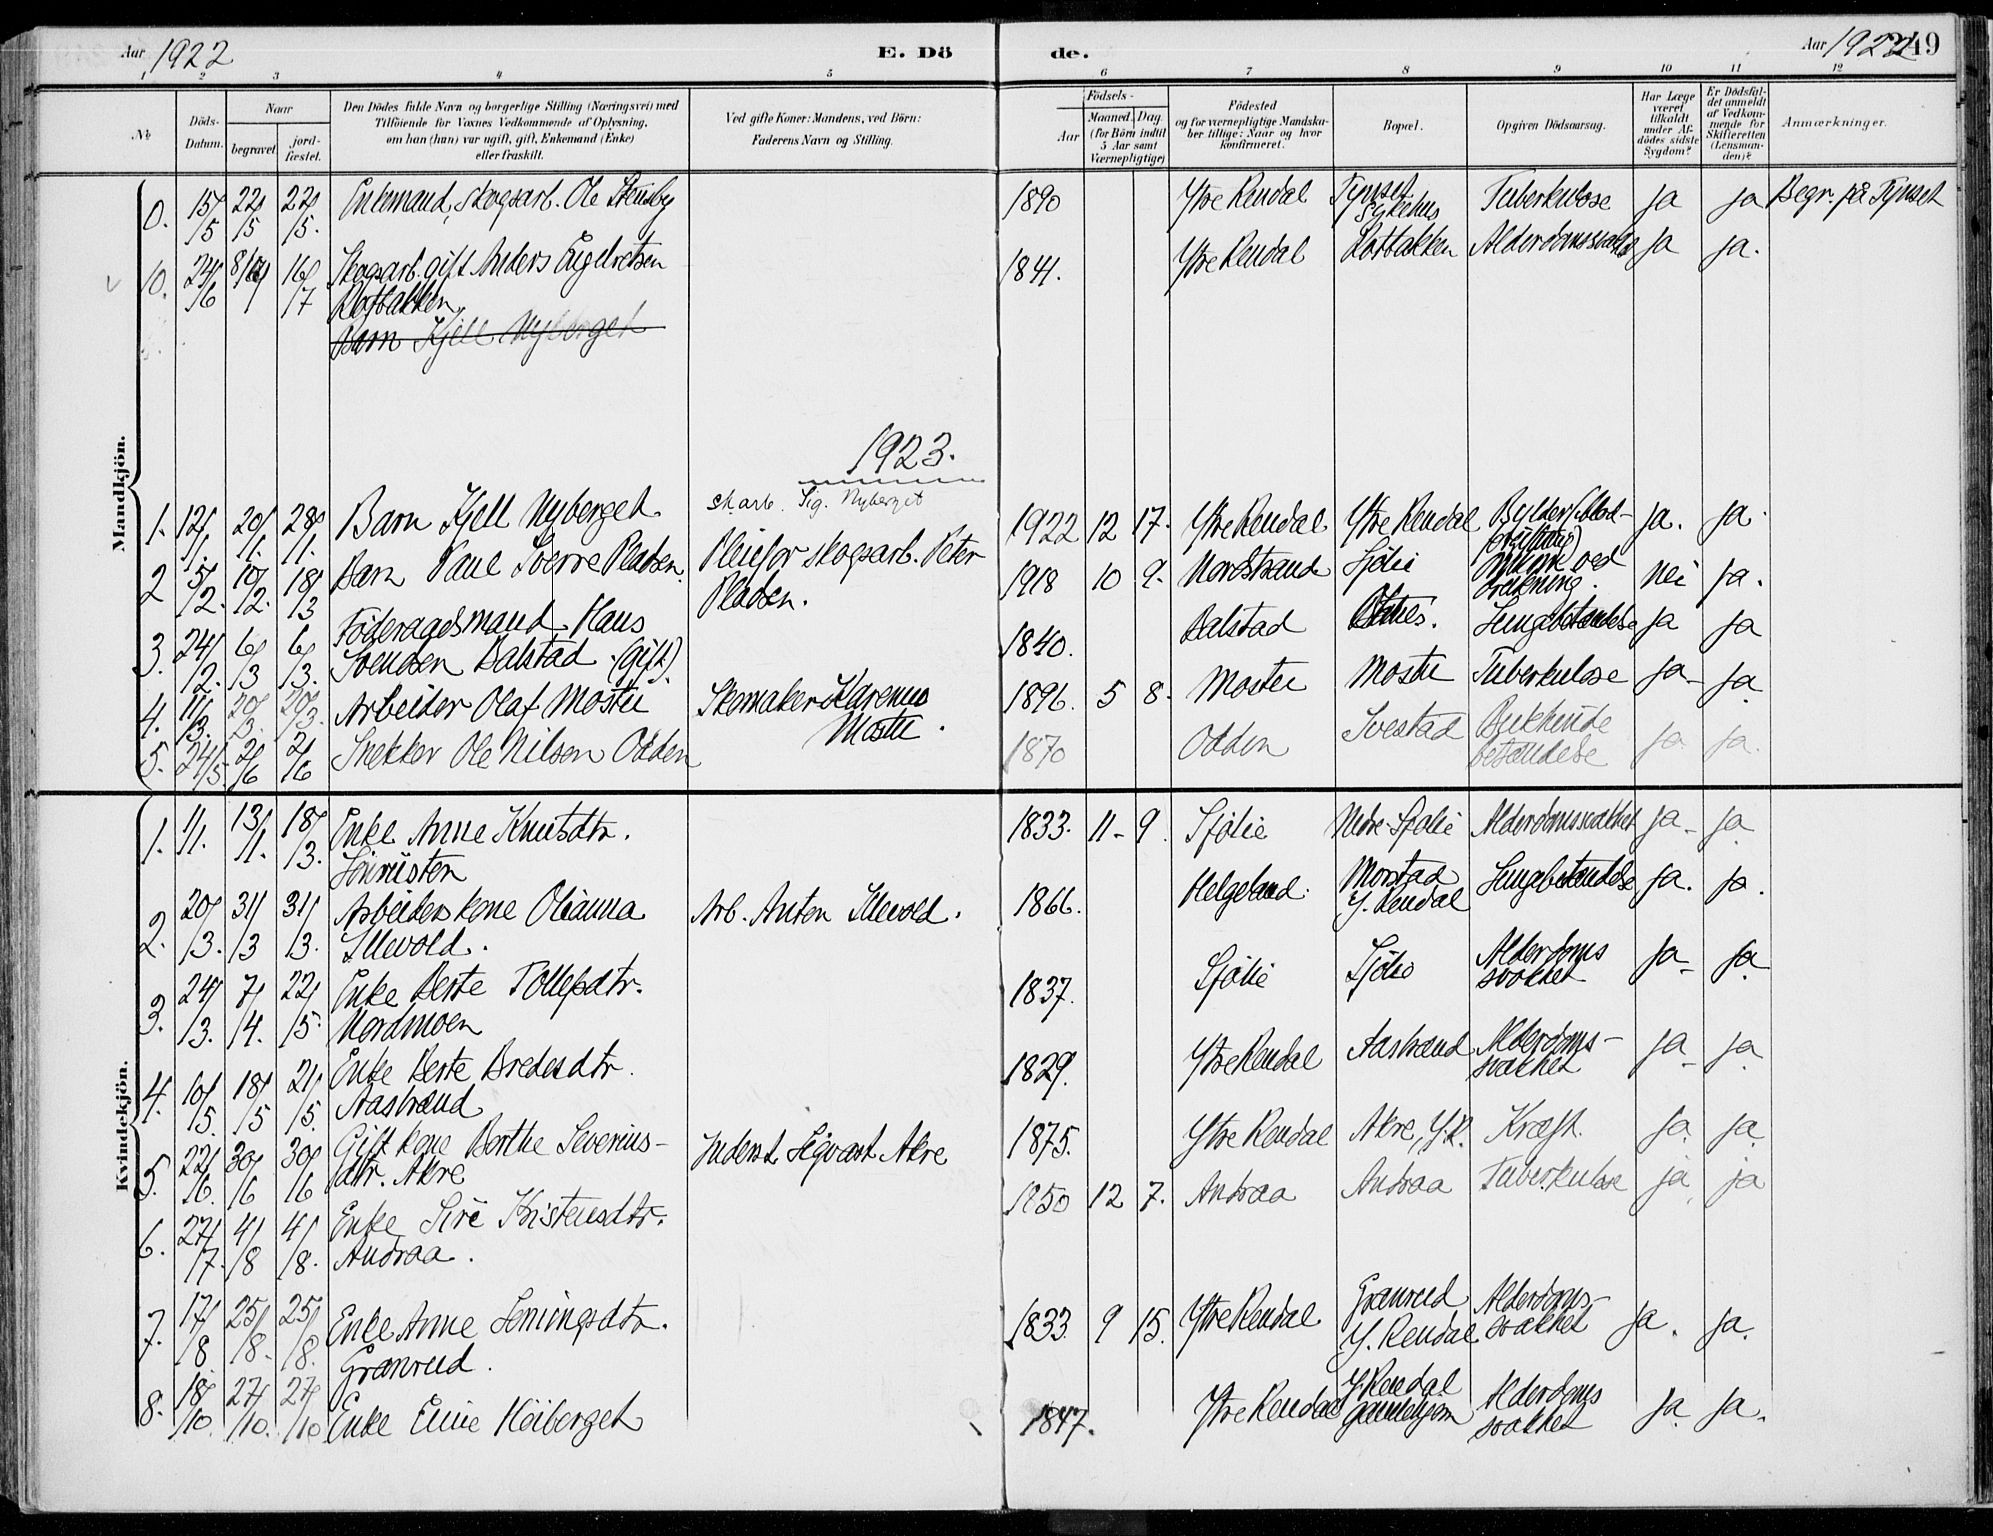 Aar 1922 E. Dö de. Aar 1922 249
1 2 3 4 5 6 7 8 9 10 11 12
№ Döds-Datum. Naar begravet jord-fæstet. Den Dödes fulde Navn og borgerlige Stilling (Næringsvei) med Tilföiende for Voxnes Vedkommende af Oplysning, om han (hun) var ugift, gift, Enkemand (Enke) eller fraskilt. Ved gifte Koner: Mandens, ved Börn: Faderens Navn og Stilling. Födsels- Aar Maaned. Dag. (for Börn indtil 5 Aar samt Værnepligtige) Födested og for værnepligtige Mandskaber tillige: Naar og hvor konfirmeret. Bopæl. Opgiven Dödsaarsag. Har Læge været tilkaldt under Afdödes sidste Sygdom? Er Dödsfaldet anmeldt af Vedkommende for Skifteretten (Lensmanden)? Anmærkninger.
Mandkjön.
15/5 22/5 22/5. Enkemand, skogsarb. Ole Stensby 1890 Ytre Rendal Tynset Sykehus Tuberkulose ja ja Begr. på Tynset
10. 24/6 16/7 Skogsarb. gift Anders Engebretsen 1841. Ytre Rendal Løtbakken Alderdomssvakhet ja ja.
Løtbakken
Barn Kjell Nyberget
1923.
1. 12/1. 20/1. 28/1. Barn Kjell Nyberget sk.arb. Sig. Nyberget 1922 12 17. Ytre Rendal Ytre Rendal Bylder (Blod- ja. ja.
2 5/2. 10/2. 18/3 Barn Paul Sverre Pladsen. Pleiefor skogsarb. Peter Pladsen. 1918 10 9. Nordstrand Sjølie Ulykke ved drukning. nei ja.
3. 24/2. 6/3 6/3. Föderaadsmand Hans Svendsen Balstad (gift). 1840. Balstad Lungebetændelse ja ja
4. 11/3. 20/3. 20/3. Arbeider Olaf Mostu Skomaker Karenus Mostu. 1896. 5 8. Mostu Mostu Tuberkulose ja ja
5. 24/5. 2/6 2/6 Snekker Ole Nilsen Odden 1870 Odden Ivestad Bukhindebetændelse ja ja.
Kvindekjön.
1. 1/1. 13/1. 18/3. Enke Anne Knutsdtr. 1833. 11 9. Sjølie Nedre Sjølie Alderdomssvakhet ja ja
2. 20/3. 31/3 31/3. Arbeiderskone Olianna Illevold. Arb. Anton Illevold. 1866. Helgeland. Morstad Y. Rendal Lungebetændelse ja. ja.
3. 24/3. 7/4. 22/5. Enke Berte Tollefsdtr. Nordmoen 1837. Sjölie Sjölie Alderdomssvakhet ja ja
4. 10/5. 18/5 21/5. Enke Berte Bredesdtr. Aastrand 1829. Ytre Rendal Aastrand Alderdoms-svakhet ja ja
5. 22/6. 30/6 30/6 Gift kone Berthe Severius-dtr. Akre Inderst Sigvart Akre 1875. Ytre Rendal Akre, Y.R. Kræft. ja. ja.
6. 27/7. 4/8 4/8. Enke Siri Kristensdtr. Andraa. 1850 12 7. Andraa Andraa Tuberkulose ja ja
7. 17/8. 25/8. 25/8. Enke Anne Lenningsdtr. Granrud. 1833. 9 15. Ytre Rendal Granrud Y. Rendal Alderdoms-svakhet ja. ja.
8. 18/10. 27/10. 27/10 Enke Eline Høiberget 1847. Ytre Rendal Y. Rendal gamlehjem Alderdomssvakhet ja ja.